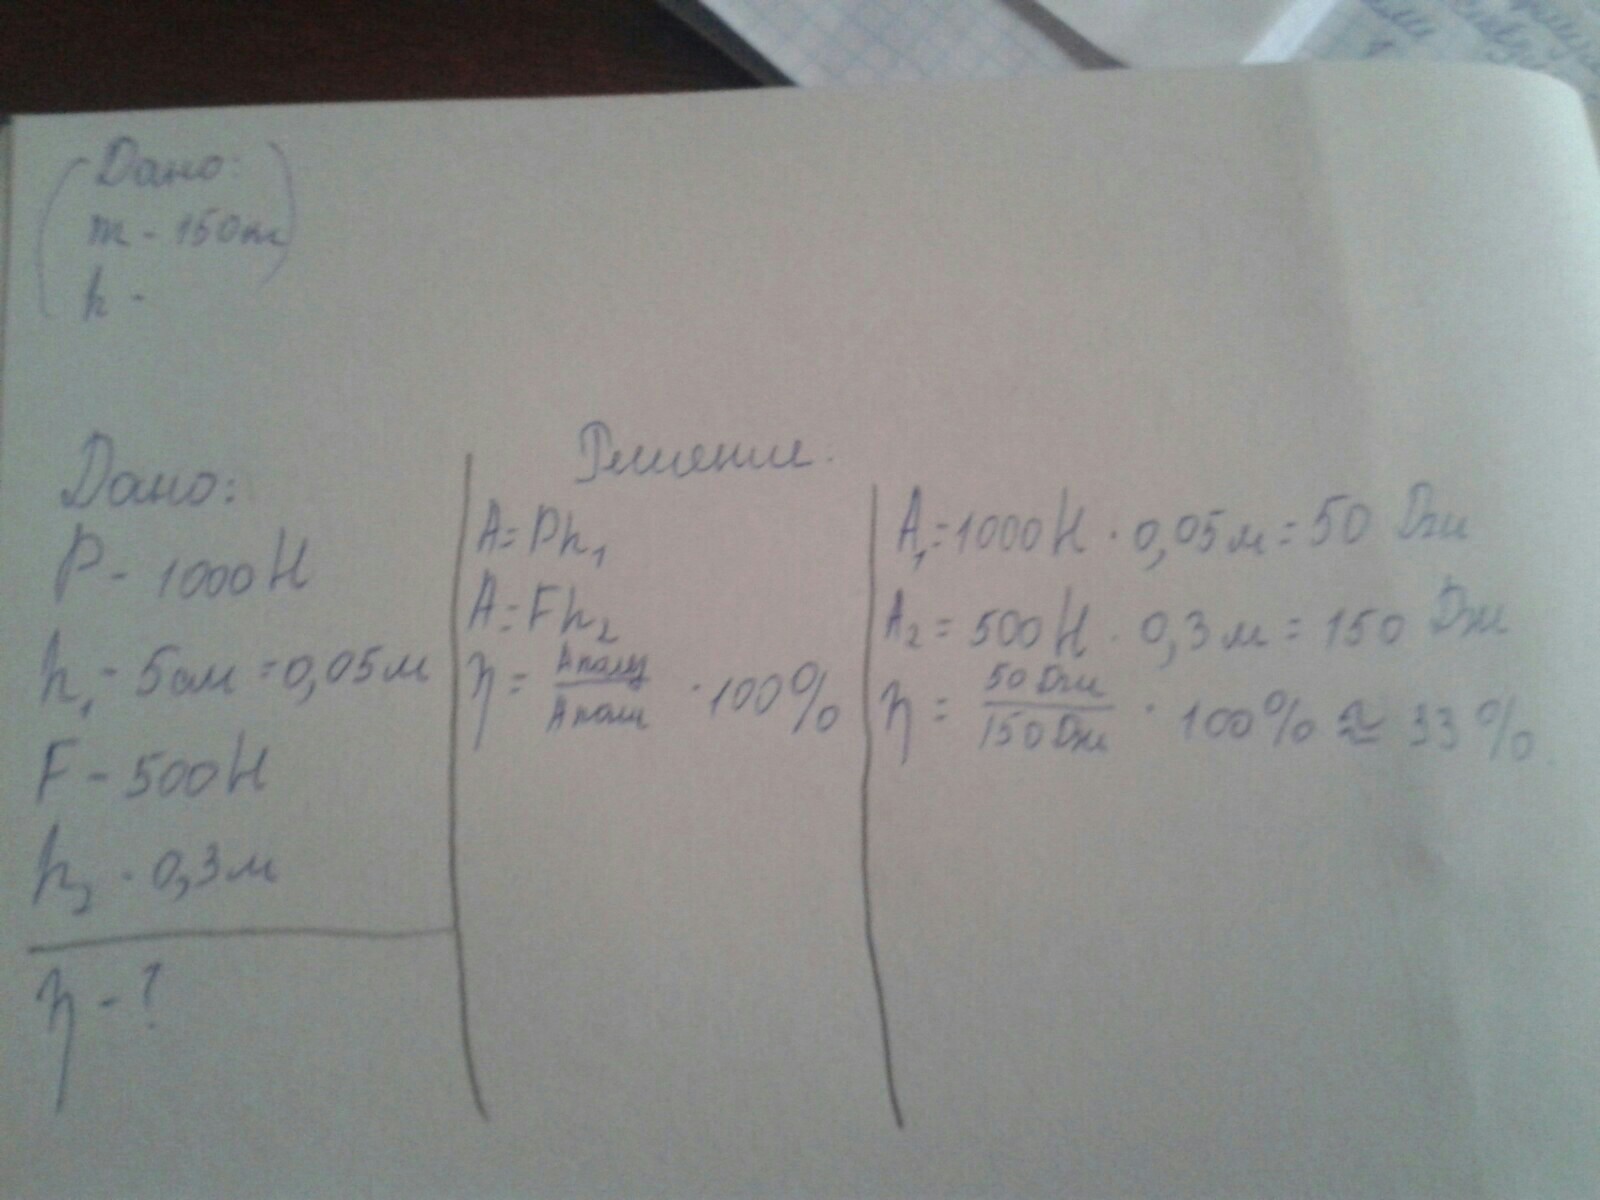 Дано:
m - 150
h -
Дано:
P - 1000 Н
h₁ - 5см = 0,05м
F - 500 Н
h₂ - 0,3м
η - ?
Решение.
A = Ph₁
A = Fh₂
η = Аполез / Аполн · 100%
A₁ = 1000 Н · 0,05 м = 50 Дж
A₂ = 500 Н · 0,3 м = 150 Дж
η = 50 Дж / 150 Дж · 100% ≈ 33%